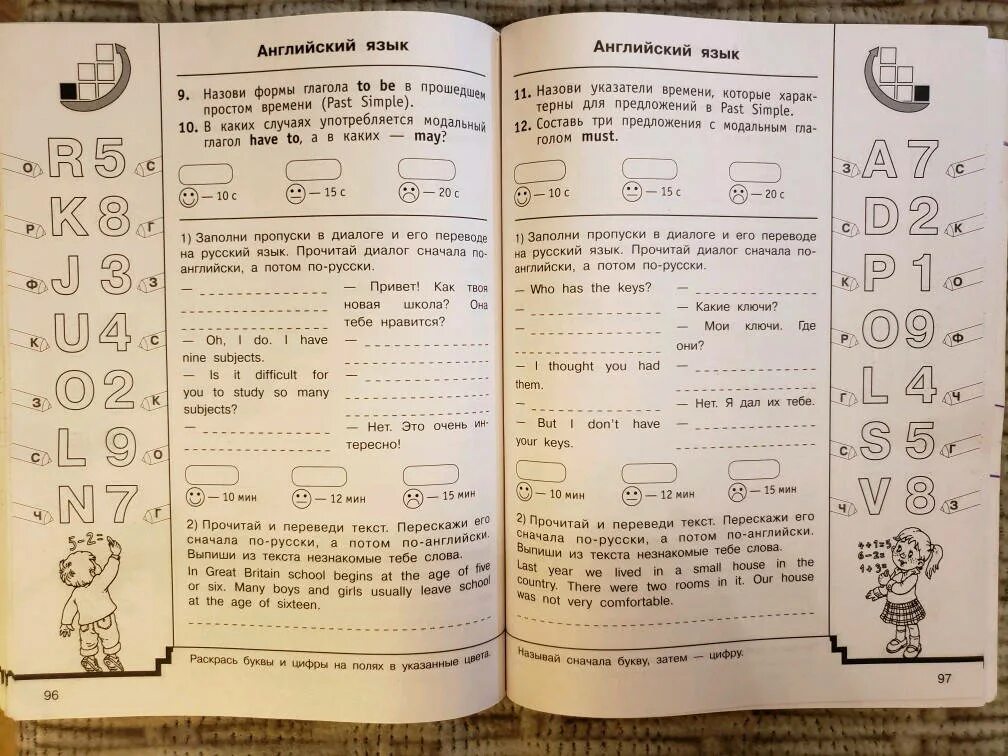 Английский язык
9. Назови формы глагола to be в прошедшем
простом времени (Past Simple).
10. В каких случаях употребляется модальный
глагол have to, а в каких — may?
— 10 с — 15 с — 20 с
1) Заполни пропуски в диалоге и его переводе
на русский язык. Прочитай диалог сначала по-
английски, а потом по-русски.
—
— Oh, I do. I have
nine subjects.
— Is it difficult for
you to study so many
subjects?
—
— Привет! Как твоя
новая школа? Она
тебе нравится?
—
—
— Нет. Это очень ин-
тересно!
— 10 мин — 12 мин — 15 мин
2) Прочитай и переведи текст. Перескажи его
сначала по-русски, а потом по-английски.
Выпиши из текста незнакомые тебе слова.
In Great Britain school begins at the age of five
or six. Many boys and girls usually leave school
at the age of sixteen.
Раскрась буквы и цифры на полях в указанные цвета.
О R 5 С
Р K 8 Г
Ф J 3 З
К U 4 С
З O 2 К
С L 9 О
Ч N 7 Г
5-2=
96
Английский язык
11. Назови указатели времени, которые харак-
терны для предложений в Past Simple.
12. Составь три предложения с модальным гла-
голом must.
— 10 с — 15 с — 20 с
1) Заполни пропуски в диалоге и его переводе
на русский язык. Прочитай диалог сначала по-
английски, а потом по-русски.
— Who has the keys?
—
—
— I thought you had
them.
—
— But I don't have
your keys.
—
— Какие ключи?
— Мои ключи. Где
они?
—
— Нет. Я дал их тебе.
—
— 10 мин — 12 мин — 15 мин
2) Прочитай и переведи текст. Перескажи его
сначала по-русски, а потом по-английски.
Выпиши из текста незнакомые тебе слова.
Last year we lived in a small house in the
country. There were two rooms in it. Our house
was not very comfortable.
Называй сначала букву, затем — цифру.
З A 7 С
С D 2 К
К P 1 О
Р O 9 Ф
Г L 4 Ч
С S 5 Г
Ч V 8 З
4+1=5
6-2=
1+3=
97